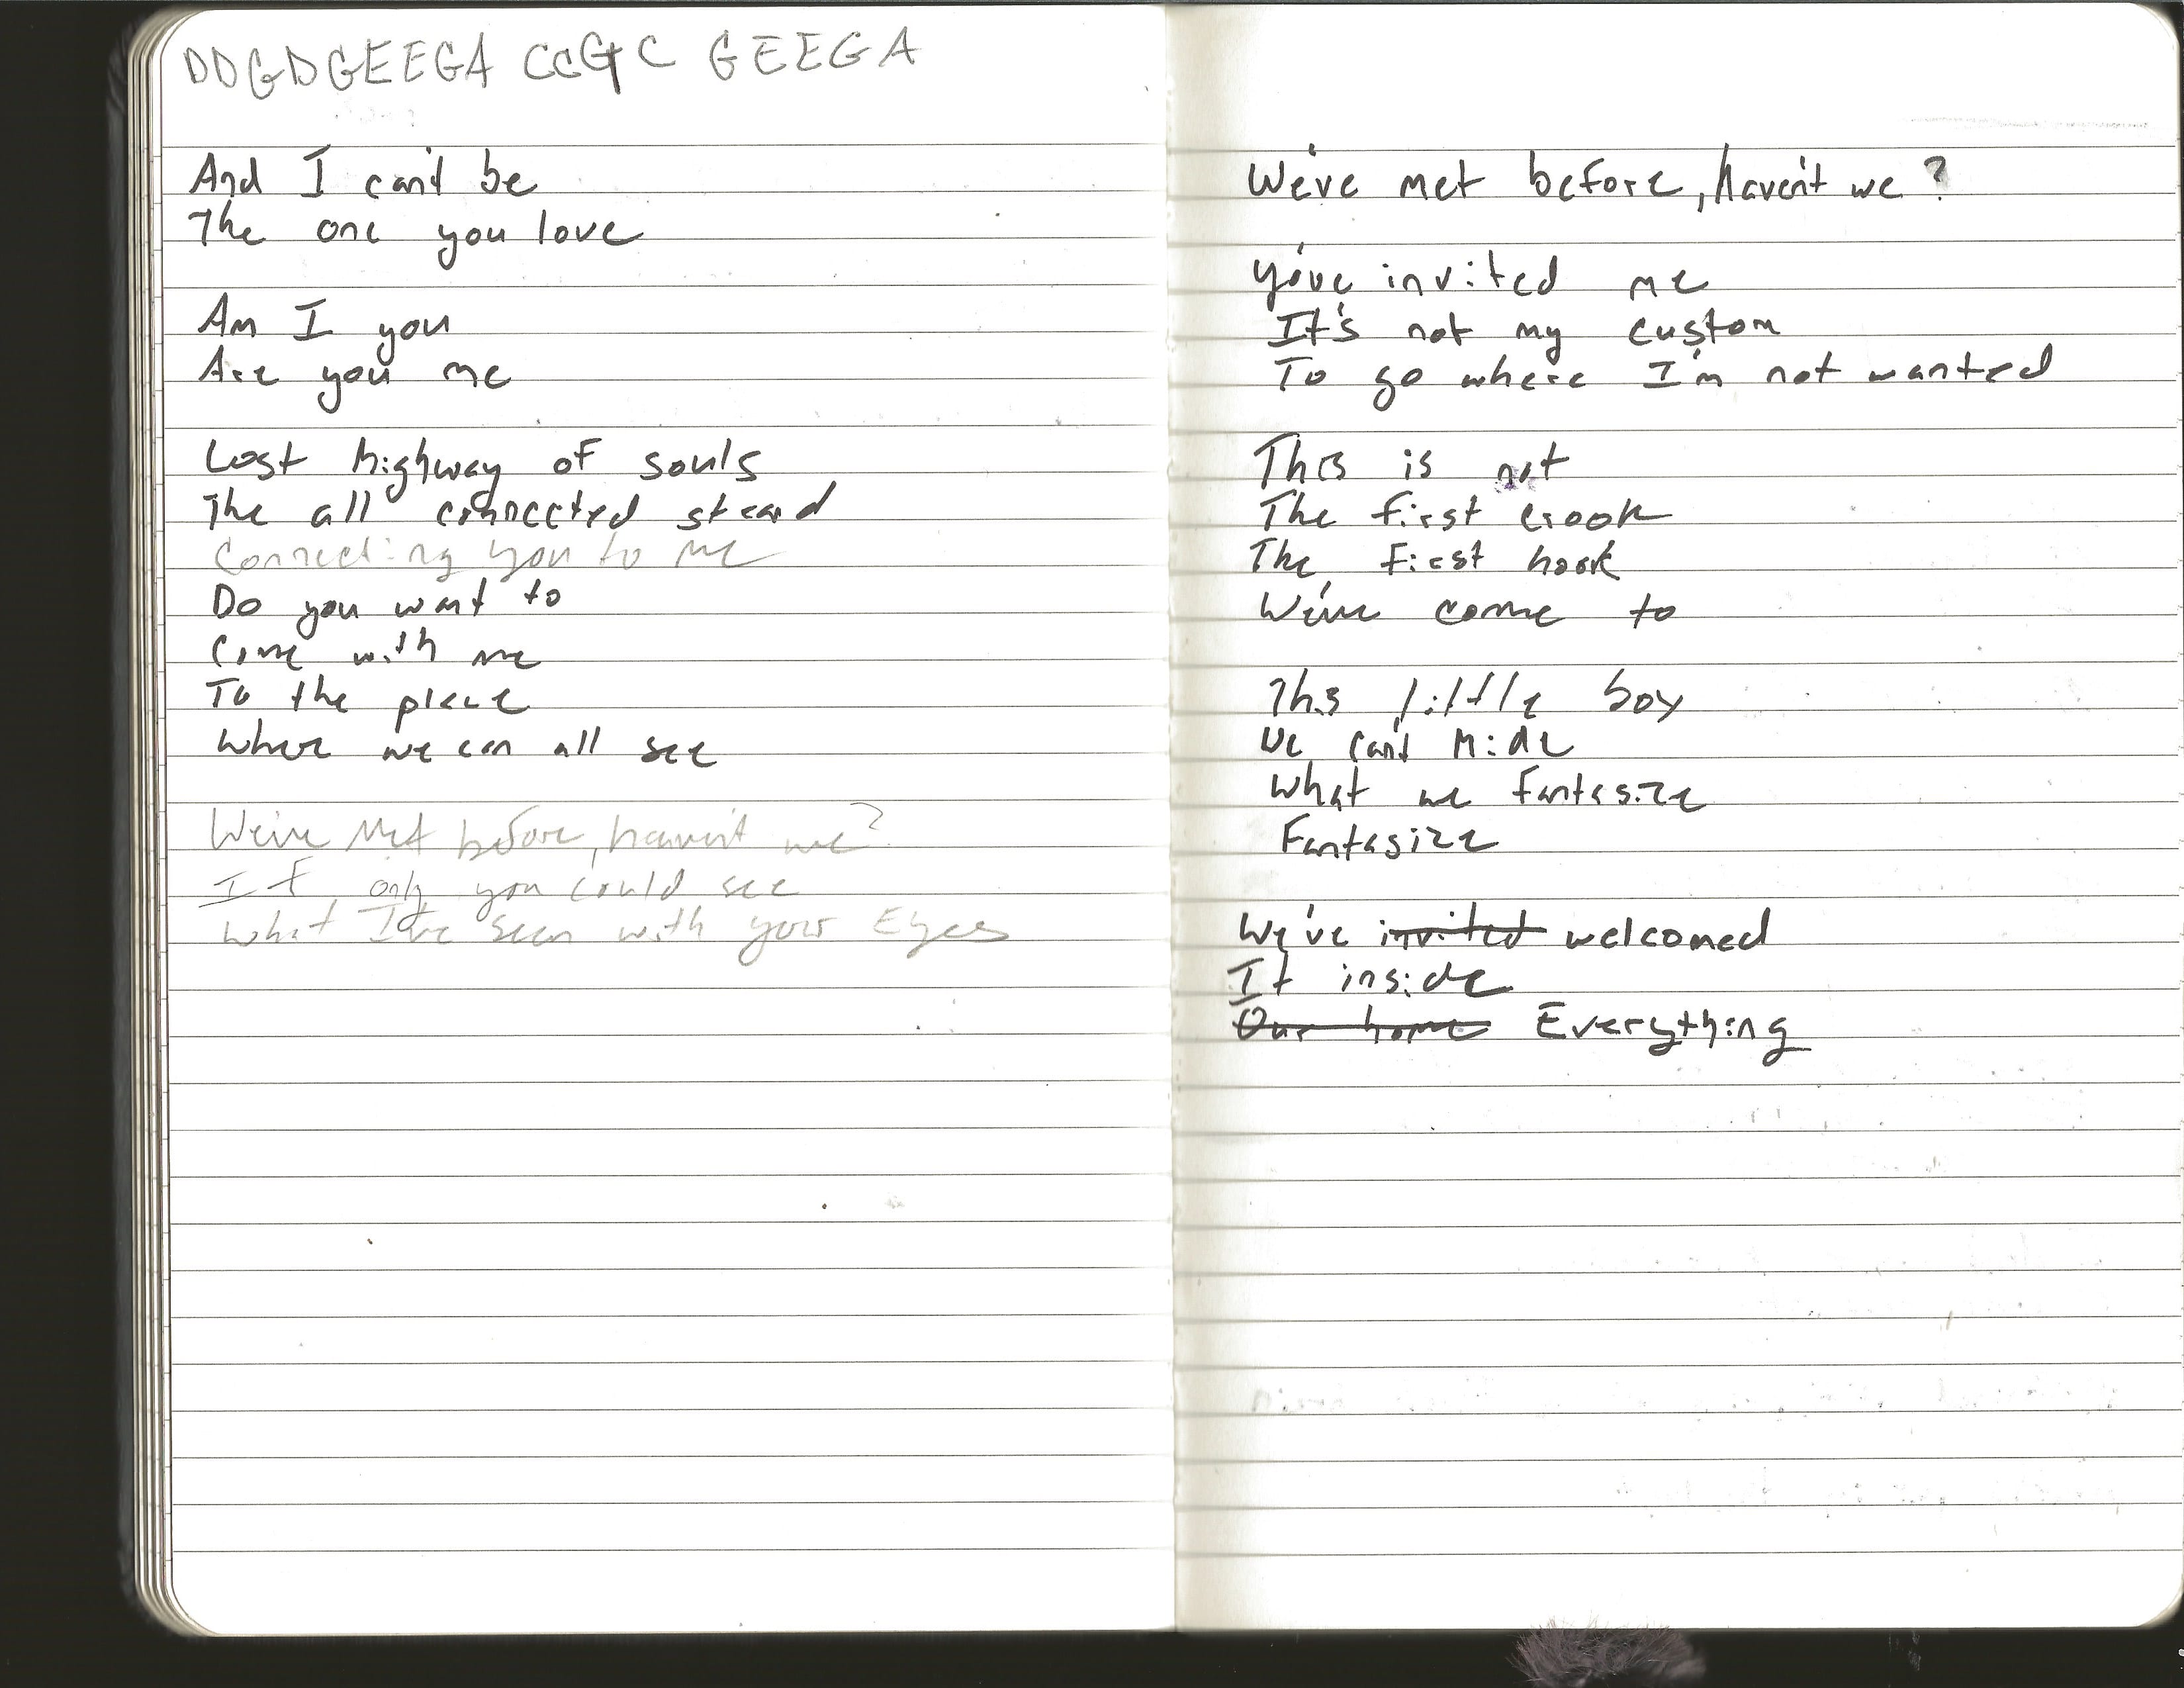 DDGDGEEGA CCGC GEEGA
And I can't be
The one you love
Am I you
Are you me
Lost highway of souls
The all connected
Connecting you to me
Do you want to
Come with me
To the place
Where we can all see
We've Met before, haven't we?
If only you could see
What I've seen with your Eyes
We've met before, haven't we?
You've invited me
It's not my custom
To go where I'm not wanted
This is not
The first crook
The first hook
We've come to
This little boy
We can't Hide
What we fantasize
Fantasize
We've invited welcomed
It inside
Our home Everything